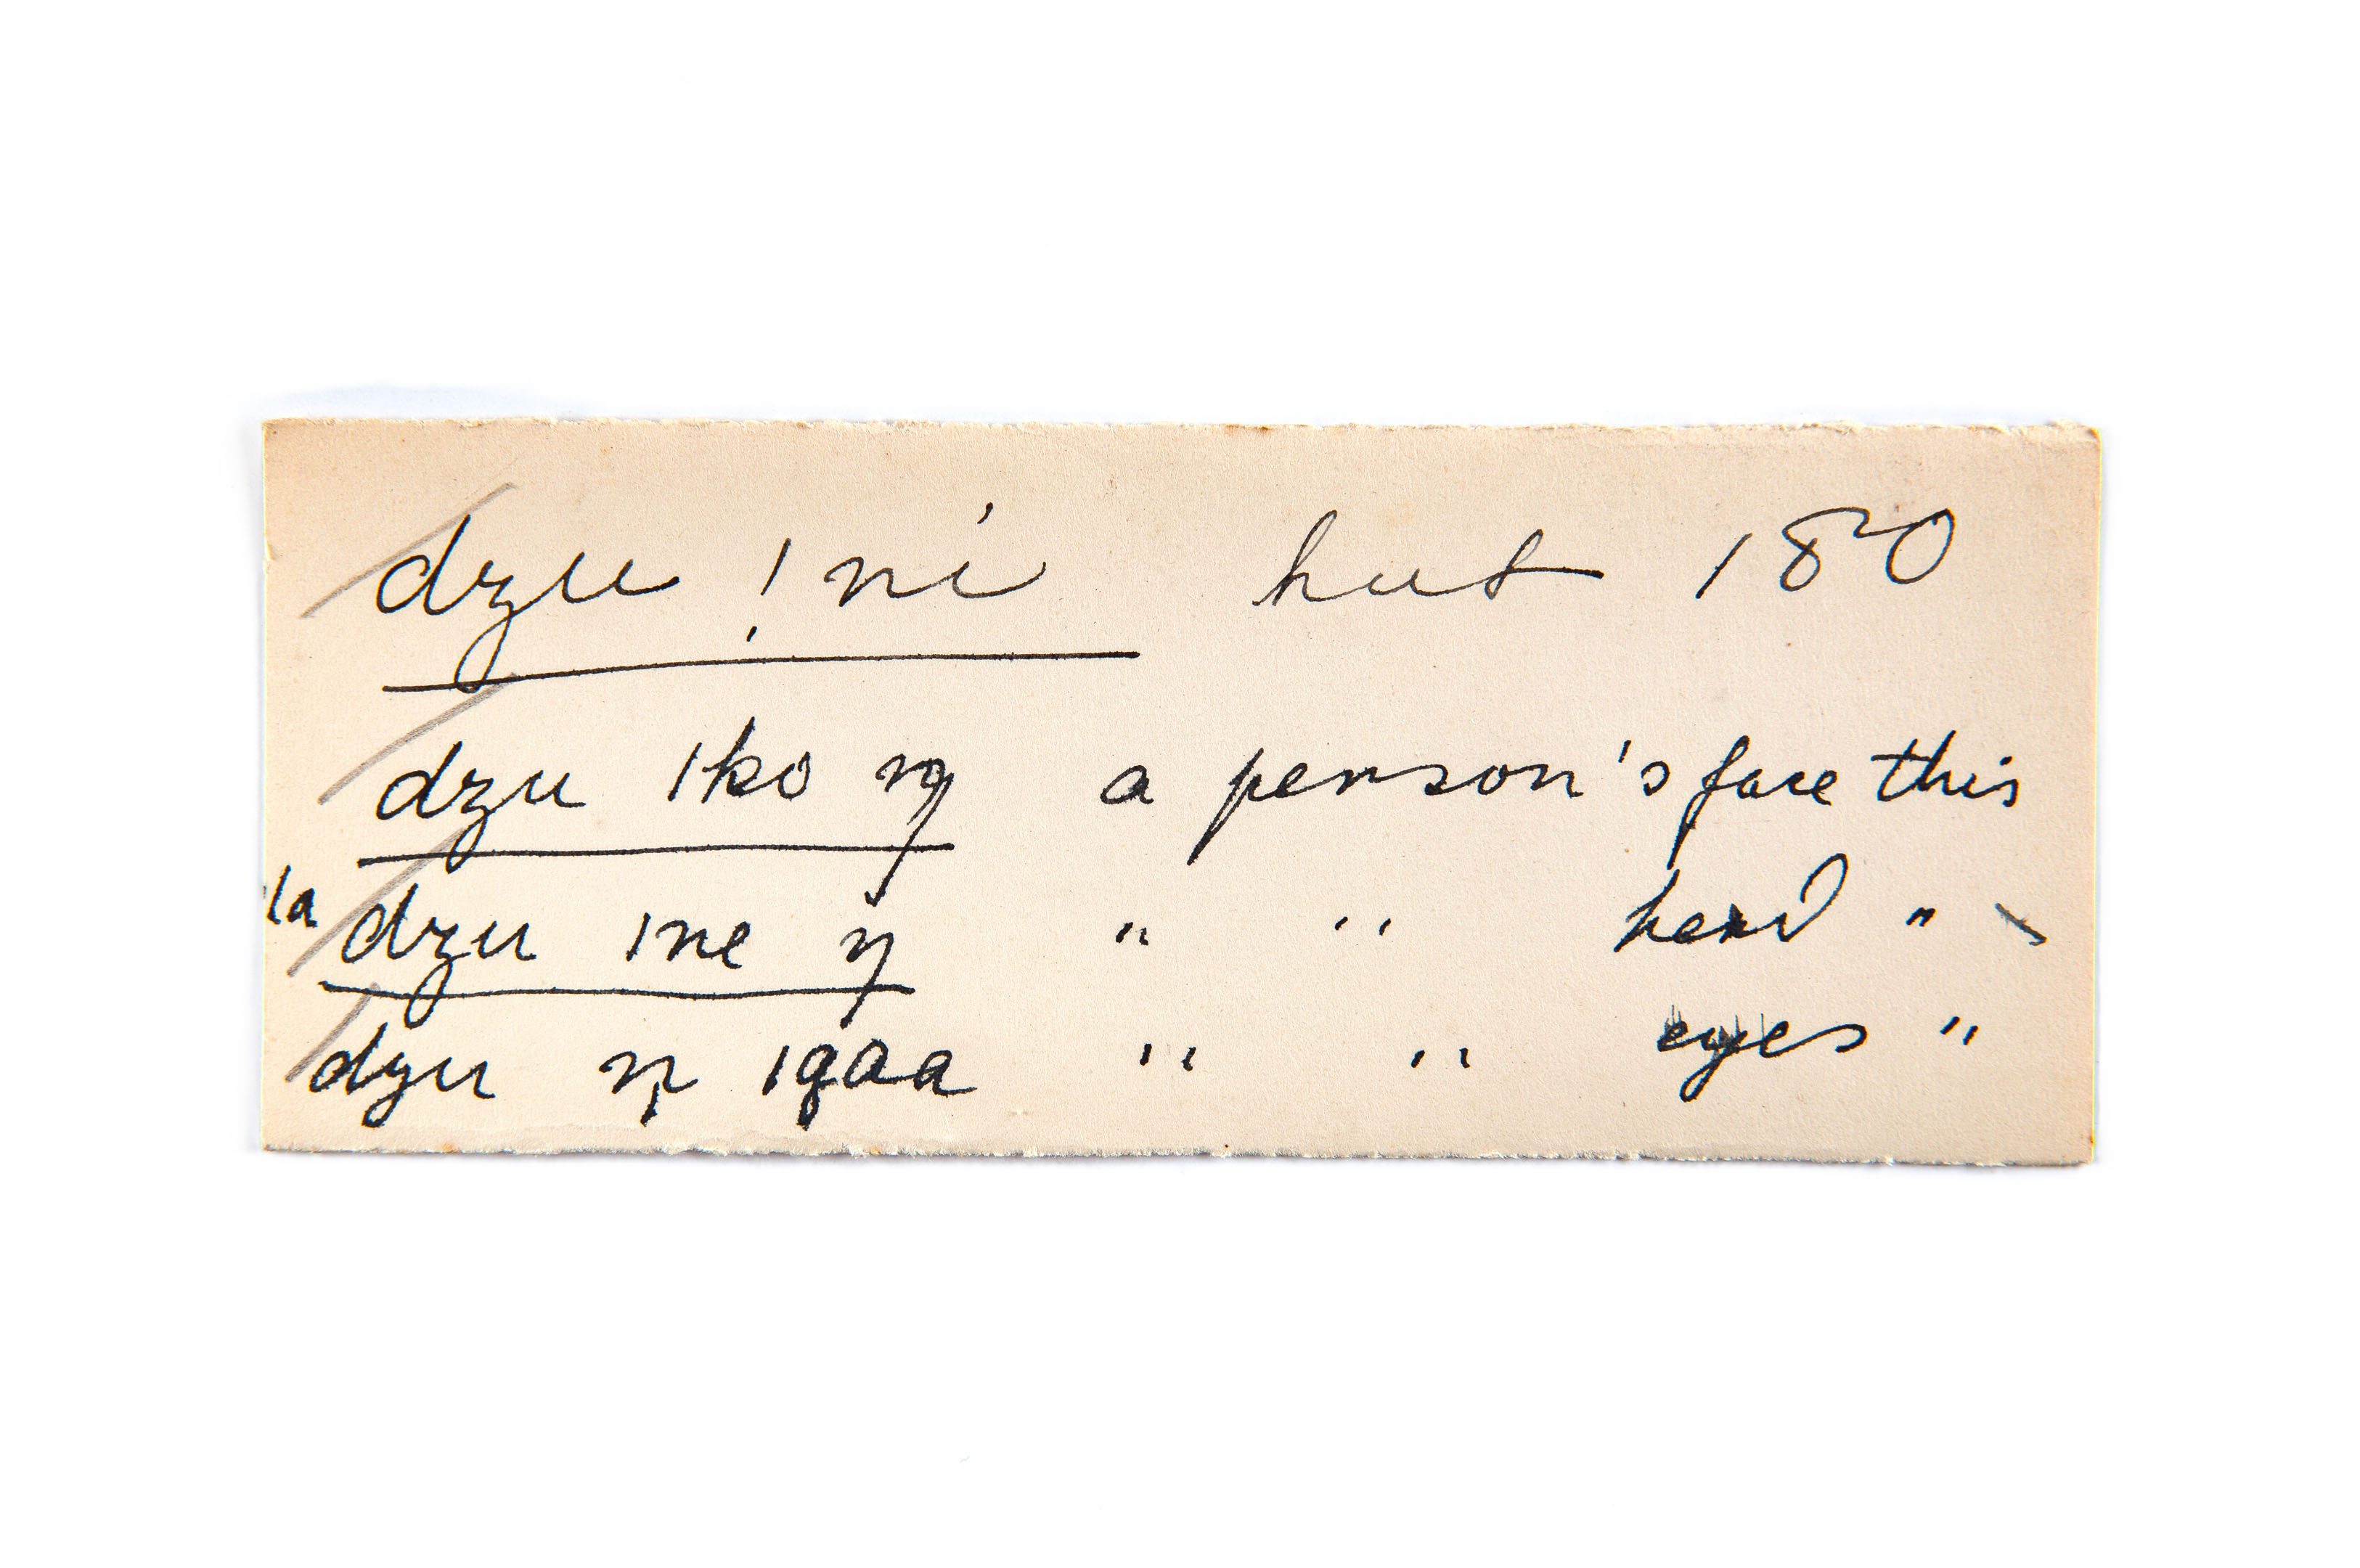 dzu !ni hut 180
dzu ǀko ŋ a person's face this
ǀa dzu ǀne ŋ " " head "
dzu ŋ ǀgaa " " eyes "